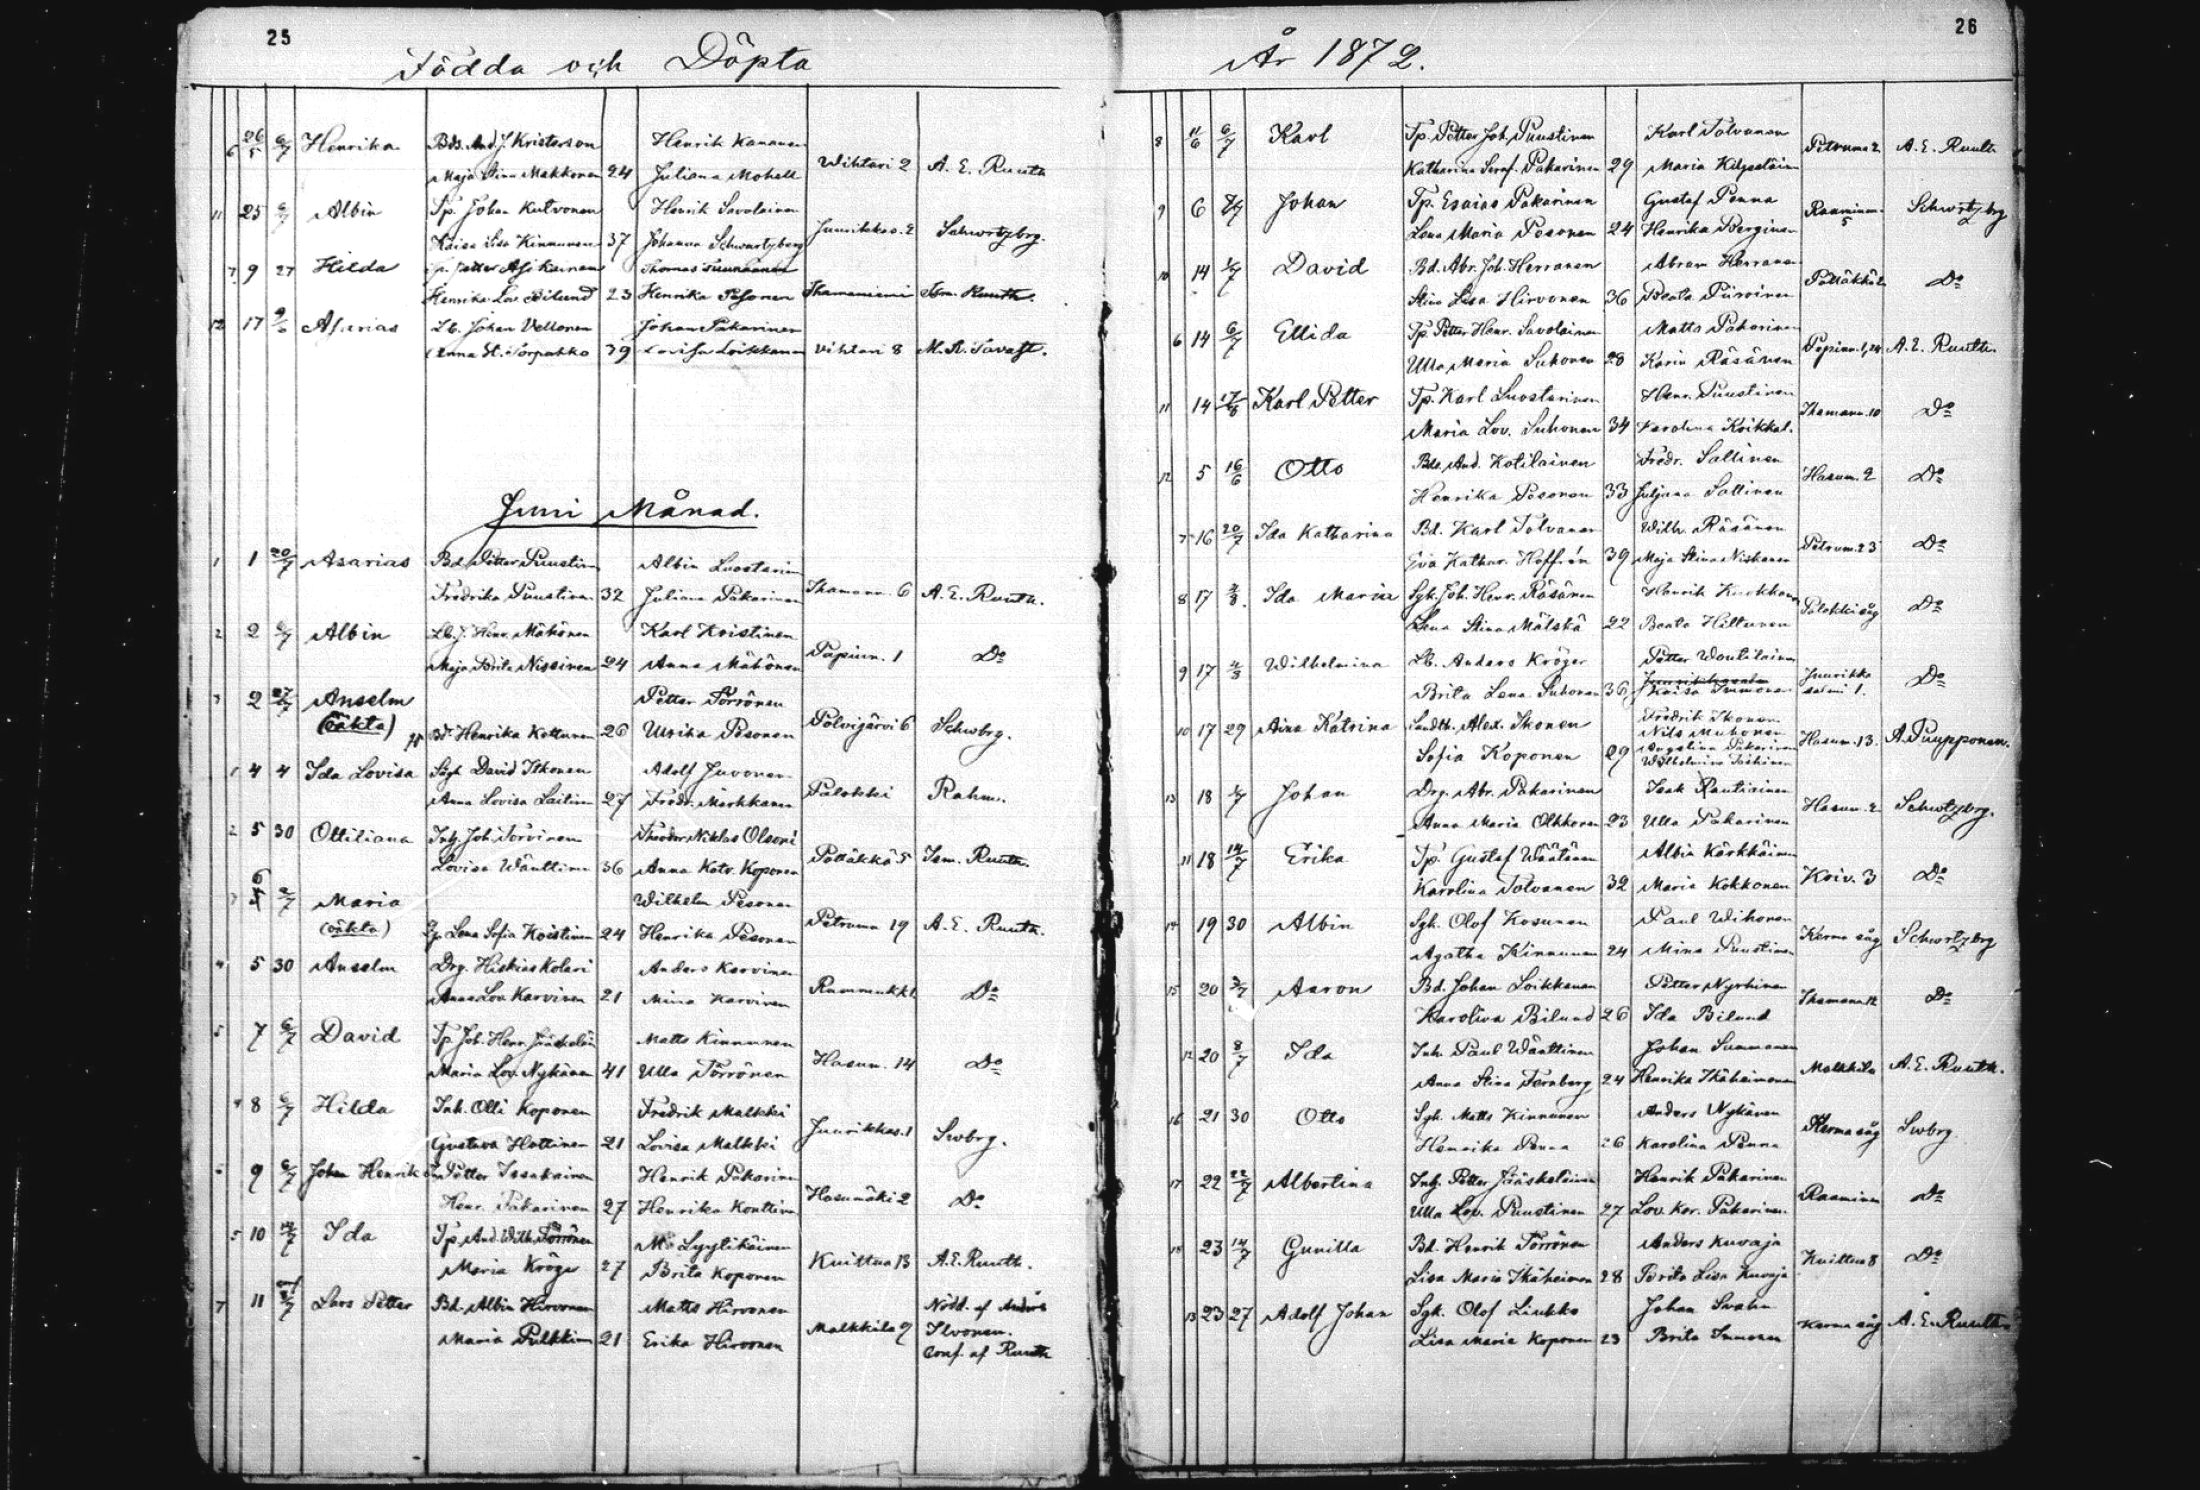 25
Födda och Döpta
6 26/5 6/7 Henrika Bds. And. J. Kristerson Henrik Kananen
Maja Stina Makkonen 24 Juliana Mohell Wihtari 2 A. E. Ruuth
11 25 6/7 Albin Tp. Johan Kutvonen Henrik Savolainen
Kaisa Lisa Kinnunen 37 Johanna Schwartzberg Juurikkas. 2 Schwrtzbrg.
7 9 27 Hilda Tp. Petter Asikainen Thomas
Henrika Lov. Bilund 23 Henrika Pesonen Thamanniemi Ruuth.
12 17 Asarias Lb. Johan Vellonen Johan Pakarinen
Anna St. Torpakko 39 Lovisa Loikkanen Vihtari 8 M. A. Tavast.
Juni Månad.
1 1 20/7 Asarias Bd. Petter Puustin Albin Luostarin
Fredrika Puustinen 32 Juliana Pakarinen Thamann. 6 A. E. Ruuth.
2 2 6/7 Albin Lb. J. Henr. Mähönen Karl Koistinen
Maja Brita Nissinen 24 Anna Mähönen Papinn. 1 Do
3 2 27/7 Anselm Petter Törrönen
(oäkta) Bd. Henrika Kettunen 26 Ulrika Pesonen Polvijärvi 6 Schwbrg.
1 4 4 Ida Lovisa Sågk David Itkonen Adolf Juvonen
Anna Lovisa Laitin 27 Fredr. Markkanen Palokki Rahm.
2 5 30 Ottiliana Inh. Joh. Torvinen Theodor Niklas Olsoni
Lovisa Wänttinen 36 Anna Katr. Koponen Pölläkkä 5 Ism. Ruuth.
3 6 2/7 Maria Wilhelm Pesonen
(oäkta) Lena Sofia Koistinen 24 Henrika Pesonen Petruma 19 A. E. Ruuth.
4 5 30 Anselm Drg. Hiskias Kolari Anders Karvinen
Anna Lov. Karvinen 21 Mina Karvinen Rummukk. Do
5 7 6/7 David Tp. Joh. Henr. Jääskeläin Matts Kinnunen
Maria Lov. Nykänen 41 Ulla Törrönen Hasum. 14 Do
4 8 6/7 Hilda Inh. Olli Koponen Fredrik Malkki
Gustava Hottinen 21 Lovisa Malkki Juurikkas. 1 Swbrg.
6 9 6/7 Johan Henrik Petter Issakainen Henrik Pakarinen
Henr. Pakarinen 27 Henrika Konttinen Hasumäki 2 Do
5 10 14/7 Ida Tp. And. Wilh. Törrönen M. Lyytikäinen
Maria Kröger 27 Brita Koponen Kuittua 13 A. E. Ruuth.
7 11 Lars Petter Bd. Albin Hirvonen Matts Hirvonen Nödd. af Anders
Maria Pulkkin 21 Erika Hirvonen Malkkila 9 Ilvonen.
Conf. af Ruuth
26
År 1872.
8 11/6 6/7 Karl Tp. Petter Joh. Puustinen Karl Tolvanen
Katharina Seraf. Pakarinen 29 Maria Kilpeläin Petruma 2 A. E. Ruuth
9 6 Johan Tp. Esaias Pakarinen Gustaf Penna
Lena Maria Pesonen 24 Henrika Berginen Raaminm. 5 Schwrtzbrg
10 14 David Bd. Abr. Joh. Herranen Abram Herranen
Stina Lisa Hirvonen 36 Beata Piiroinen Pölläkkä 2 Do
6 14 6/7 Ellida Tp. Petter Henr. Savolainen Matts Pakarinen
Ulla Maria Suhonen 28 Karin Räsänen Papinn. 1, 24 A. E. Ruuth.
11 14 17/8 Karl Petter Tp. Karl Luostarinen Henr. Puustinen
Maria Lov. Suhonen 34 Karolina Koikkal. Thamann. 10 Do
12 5 16/6 Otto Bds. And. Kotilainen Fredr. Sallinen
Henrika Pesonen 33 Juljana Sallinen Hasum. 2 Do
7 16 20/7 Ida Katharina Bd. Karl Tolvanen Wilh. Räsänen
Eva Kathar. Hoffrén 39 Maja Stina Niskanen Petrum. 23 Do
8 17 4/8 Ida Maria Sgk. Joh. Henr. Räsänen Henrik Kuokkanen
Lena Stina Mälskä 22 Beata Hiltunen Palokki såg Do
9 17 4/8 Wilhelmina Lb. Anders Kröger Petter Wantilainen
Brita Lena Suhonen 36 Kaisa Immonen Juurikkasalmi 1. Do
10 17 29 Aina Katrina Landth. Alex. Ikonen Fredrik Ikonen
Nils Muhonen
Sofia Koponen 29 Augustina Pakarinen Hasum. 13. A. Puupponen.
Wilhelmina Toskinen
13 18 Johan Drg. Abr. Pakarinen Isak Rautiainen
Anna Maria Olkkonen 23 Ulla Pakarinen Hasum. 2 Schwtzbrg.
11 18 14/7 Erika Tp. Gustaf Wäätänen Albin Kärkkäinen
Karolina Tolvanen 32 Maria Kokkonen Koiv. 3 Do
14 19 30 Albin Sgk. Olof Kosunen Paul Wihonen
Agatha Kinnunen 24 Mina Puustinen Kerma såg Schwrtzbrg
15 20 3/7 Aaron Bd. Johan Loikkanen Petter Nyrhinen
Karolina Bilund 26 Ida Bilund Thamann 12 Do
12 20 8/7 Ida Inh. Paul Wänttinen Johan Summanen
Anna Stina Fernberg 24 Henrika Ikäheimonen Malkkila A. E. Ruuth.
16 21 30 Otto Sgk. Matts Kinnunen Anders Nykänen
Henrika Penna 26 Karolina Penna Kerma såg Swbrg
17 22 22/7 Albertina Inh. Petter Jääskeläinen Henrik Pakarinen
Ulla Lov. Puustinen 27 Lov. Kar. Pakarinen. Raaminm Do
18 23 14/7 Gunilla Bd. Henrik Törrönen Anders Kuvaja
Lisa Maria Ikäheimonen 28 Brita Lisa Kuvaja Kuittua 8 Do
13 23 27 Adolf Johan Sgk. Olof Liukko Johan Svahn
Lisa Maria Koponen 23 Brita Immonen Kerma såg A. E. Ruuth